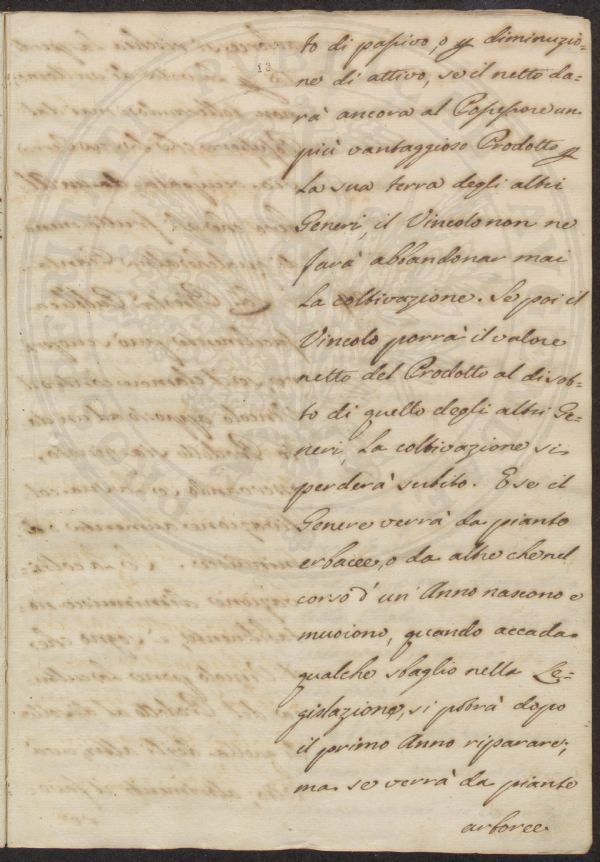 13
to di passivo, o p diminuzio-
ne di attivo, se il netto da-
rà ancora al Possessore un
più vantaggioso Prodotto p
la sua terra degli altri
Generi, il Vincolo non ne
farà abbandonar mai
la coltivazione. Se poi il
Vincolo porrà il valore
netto del Prodotto al disot-
to di quello degli altri Ge-
neri, la coltivazione si
perderà subito. E se il
Genere verrà da piante
erbacee, o da altre che nel
corso d'un Anno nascono e
muoiono, quando accada
qualche sbaglio nella Le-
gislazione, si potrà dopo
il primo Anno riparare;
ma se verrà da piante
arboree